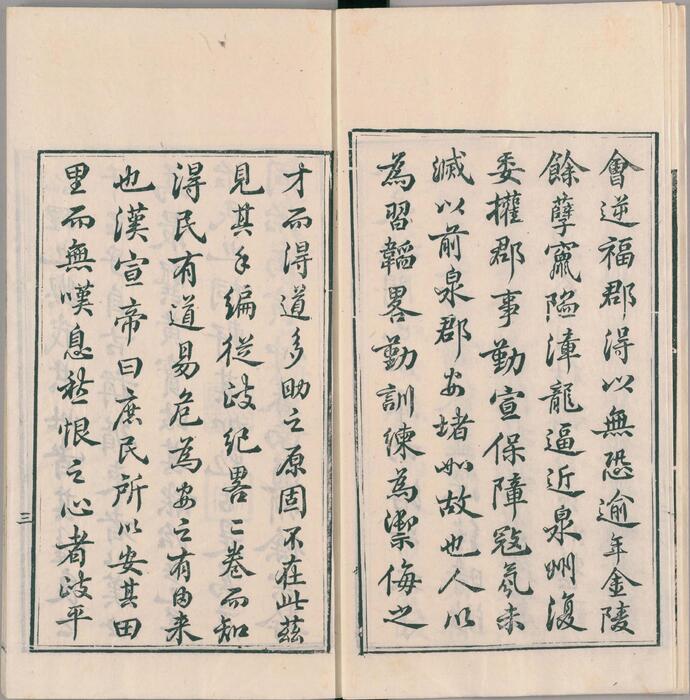 會逆福郡得以無恐逾年金陵
餘孽竄陷漳龍逼近泉州復
委權郡事勤宣保障寇氛未
滅以前泉郡安堵如故也人以
為習韜畧勤訓練為禦侮之
才而得道多助之原固不在此茲
見其手編從政紀畧二卷而知
得民有道易危為安之有由来
也漢宣帝曰庶民所以安其田
里而無嘆息愁恨之心者政平
三